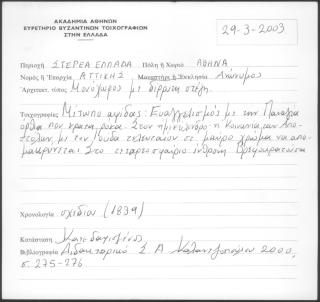 ΑΚΑΔΗΜΙΑ ΑΘΗΝΩΝ
ΕΥΡΕΤΗΡΙΟ ΒΥΖΑΝΤΙΝΩΝ ΤΟΙΧΟΓΡΑΦΙΩΝ
ΣΤΗΝ ΕΛΛΑΔΑ
29-3-2003
Περιοχή ΣΤΕΡΕΑ ΕΛΛΑΔΑ Πόλη ή Χωριό ΑΘΗΝΑ
Νομός ή Ἐπαρχία ΑΤΤΙΚΗΣ Μοναστήρι ή Ἐκκλησία Ἀνώνυμος
Ἀρχιτεκτ. τύπος Μονόχωρος με δίρριχτη στέγη.
Τοιχογραφίες Μέτωπο αψίδας: Ευαγγελισμός με την Παναγία
όρθια που κρατά ρόκα. Στον ημικύλινδρο: η Κοινωνία των Απο-
στόλων, με τον Ιούδα τελευταίον σε μαύρο χρώμα να απο-
μακρύνεται. Στο τεταρτοσφαίριο: ένθρονη Βρεφοκρατούσα
Χρονολογία σχεδίου (1839)
Κατάσταση Κατεδαφισμένος
Βιβλιογραφία Διδακτορικό Σ. Α Καλαντζοπούλου 2000,
σ. 275-276